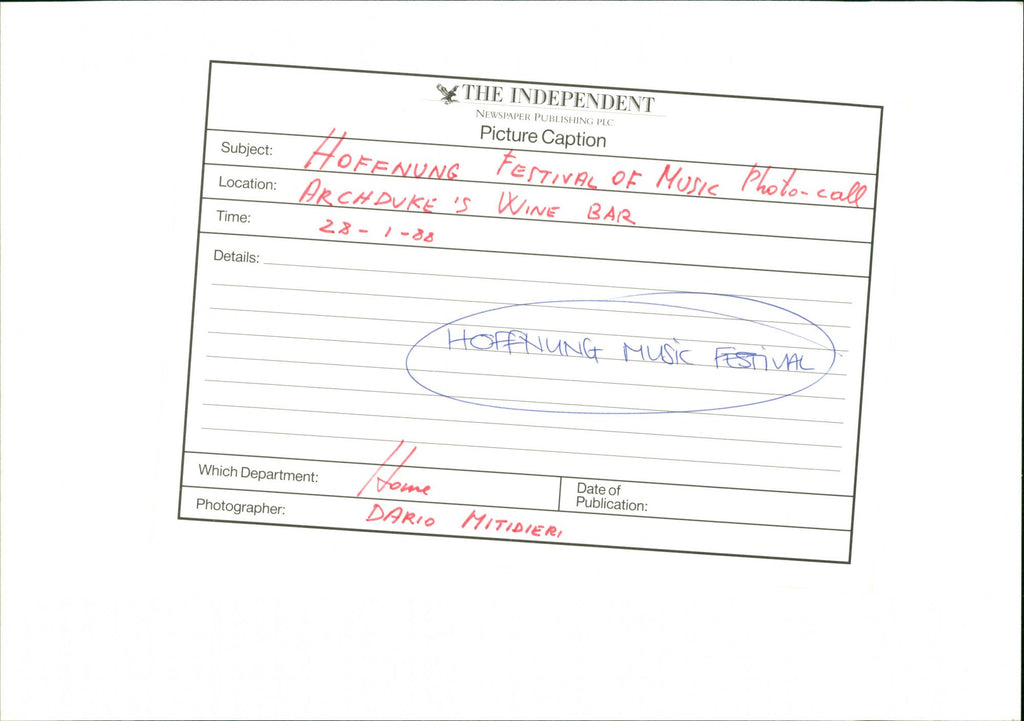 THE INDEPENDENT
NEWSPAPER PUBLISHING PLC
Picture Caption
Subject: HOFFNUNG FESTIVAL OF MUSIC Photo-call
Location: ARCHDUKE'S WINE BAR
Time: 28-1-88
Details:
HOFFNUNG MUSIC FESTIVAL
Which Department: Home
Date of
Publication:
Photographer: DARIO MITIDIERI